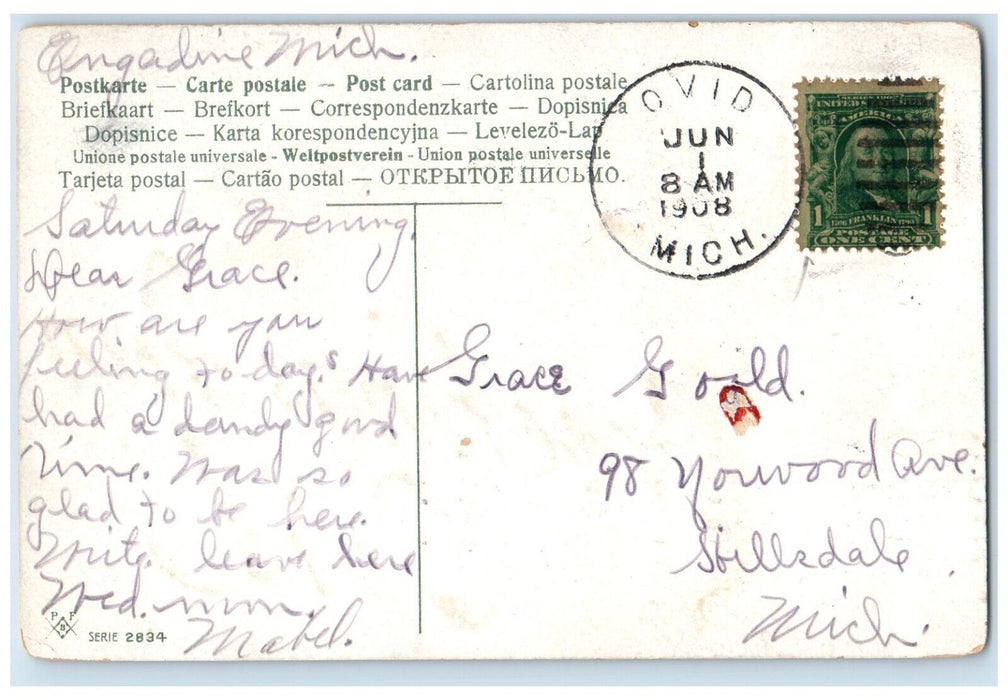 Engadine Mich.
Postkarte — Carte postale — Post card — Cartolina postale
Briefkaart — Brefkort — Correspondenzkarte — Dopisnica
Dopisnice — Karta korespondencyjna — Levelező-Lap
Unione postale universale - Weltpostverein - Union postale universelle
Tarjeta postal — Cartão postal — ОТКРЫТОЕ ПИСЬМО.
OVID
JUN
1
8 AM
1908
MICH.
SERIES 1902
UNITED STATES OF
AMERICA
1 FRANKLIN 1
POSTAGE
ONE CENT
Saturday Evening,
Dear Grace.
How are you
feeling today? Have
had a dandy good
time. Was so
glad to be here.
Write. leave here
Wed.
Mabel.
Grace Gould.
98 Ave.
Hillsdale,
Mich.
P F
B
SERIE 2834